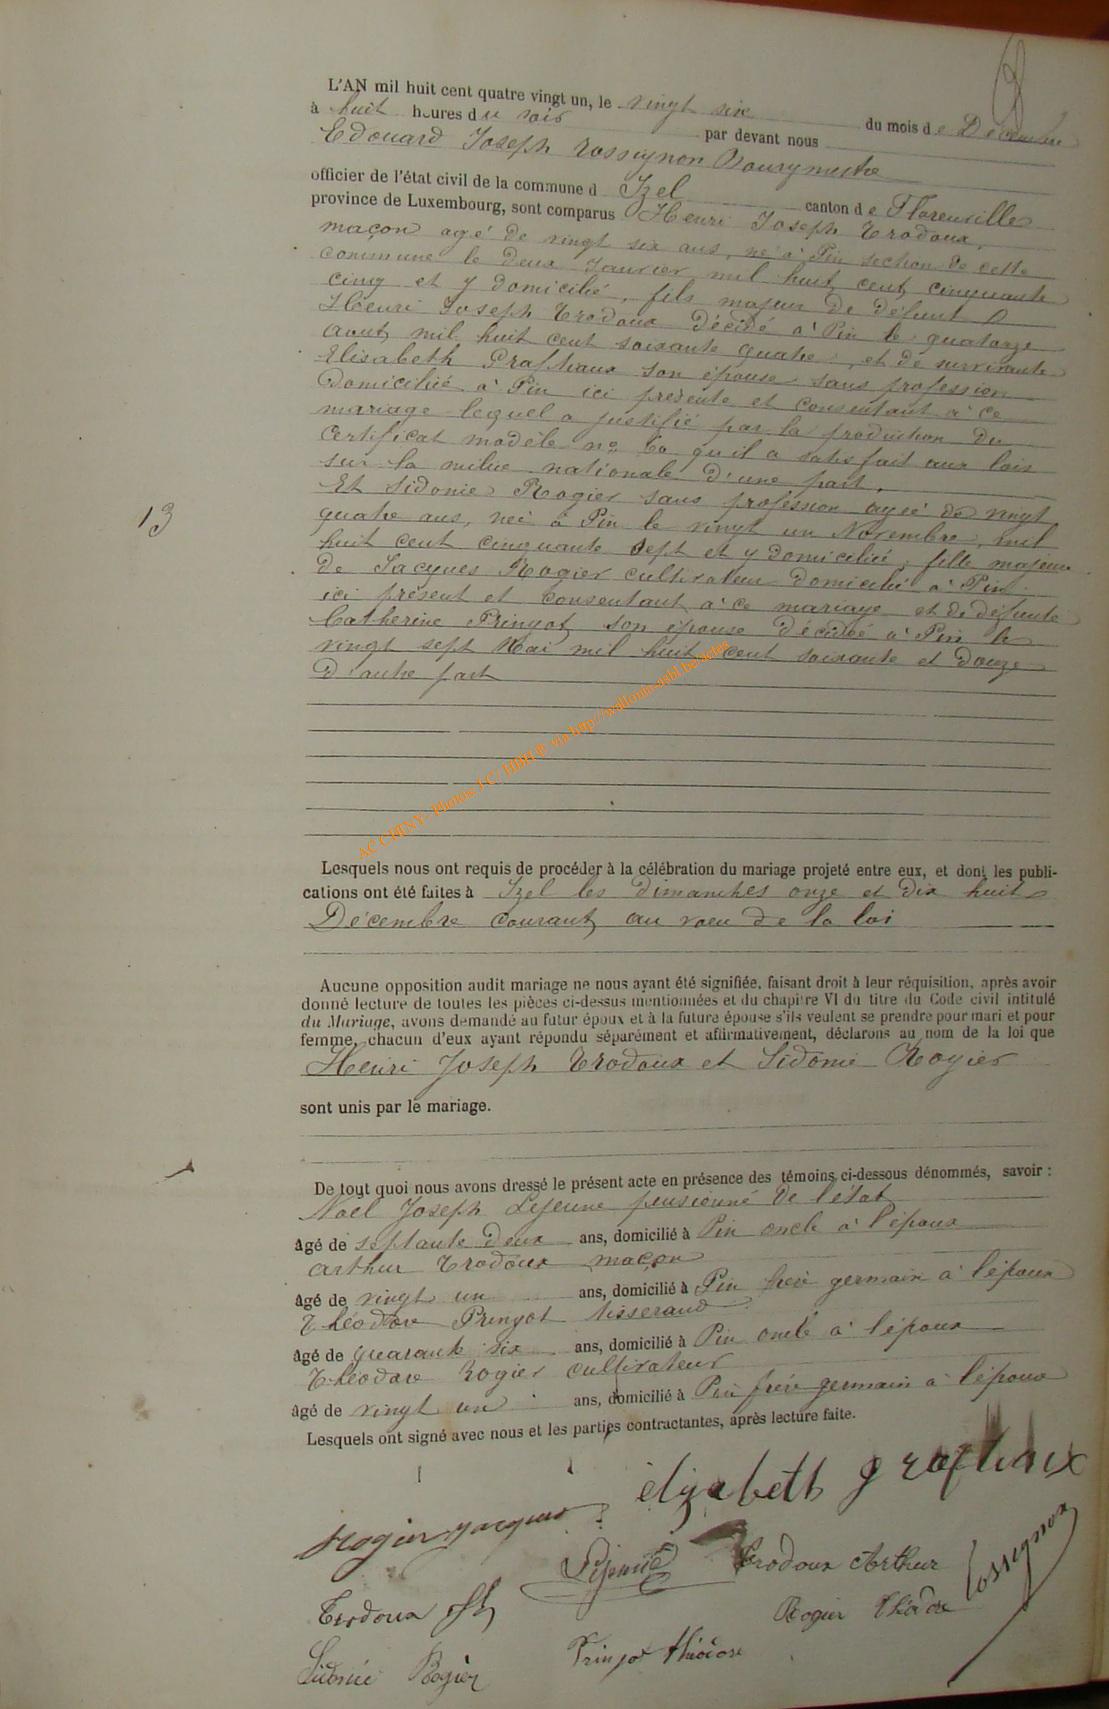 L'AN mil huit cent quatre vingt un, le vingt six du mois de Décembre
à huit heures du soir par devant nous
Edouard Joseph Rossignon Bourgmestre
officier de l'état civil de la commune d Izel canton de Florenville
province de Luxembourg, sont comparus Henri Joseph Trodoux,
maçon agé de vingt six ans, né à Pin section de cette
commune le deux Janvier mil huit cent cinquante
cinq et y domicilié, fils majeur de défunt
Henri Joseph Trodoux décédé à Pin le quatorze
aout mil huit cent soixante quatre, et de survivante
Elisabeth Grafteaux son épouse sans profession
domiciliée à Pin ici présente et consentant à ce
mariage lequel a justifié par la production du
certificat modèle no qu'il a satisfait aux lois
sur la milice nationale d'une part,
Et Sidonie Rogier sans profession agée de vingt
quatre ans, née à Pin le vingt un Novembre, mil
huit cent cinquante sept et y domiciliée, fille majeure
de Jacques Rogier cultivateur domicilié à Pin
ici présent et consentant à ce mariage et de défunte
Catherine Pringot son épouse décédée à Pin le
vingt sept Mai mil huit cent soixante et douze
d'autre part
13
AC CHINY - Photos J-C / HBH © via http://wallonia-asbl.be/actes
Lesquels nous ont requis de procéder à la célébration du mariage projeté entre eux, et dont les publi-
cations ont été faites à Izel les dimanches onze et dix huit
Décembre courant au voeu de la loi
Aucune opposition audit mariage ne nous ayant été signifiée, faisant droit à leur réquisition, après avoir
donné lecture de toutes les pièces ci-dessus mentionnées et du chapitre VI du titre du Code civil intitulé
du Mariage, avons demandé au futur époux et à la future épouse s'ils veulent se prendre pour mari et pour
femme, chacun d'eux ayant répondu séparément et affirmativement, déclarons au nom de la loi que
Henri Joseph Trodoux et Sidonie Rogier
sont unis par le mariage.
De tout quoi nous avons dressé le présent acte en présence des témoins ci-dessous dénommés, savoir :
Noel Joseph Lejeune pensionné de l'état
âgé de septante deux ans, domicilié à Pin oncle à l'époux
Arthur Trodoux maçon
âgé de vingt un ans, domicilié à Pin frère germain à l'époux
Théodore Pringot tisserand
âgé de quarante six ans, domicilié à Pin oncle à l'épouse
Théodore Rogier cultivateur
âgé de vingt un ans, domicilié à Pin frère germain à l'épouse
Lesquels ont signé avec nous et les parties contractantes, après lecture faite.
élizabeth grafteaux
Rogier jacques
Lejeune Trodoux Arthur Rossignon
Trodoux Rogier Théodore
Sidonie Rogier Pringot théodore